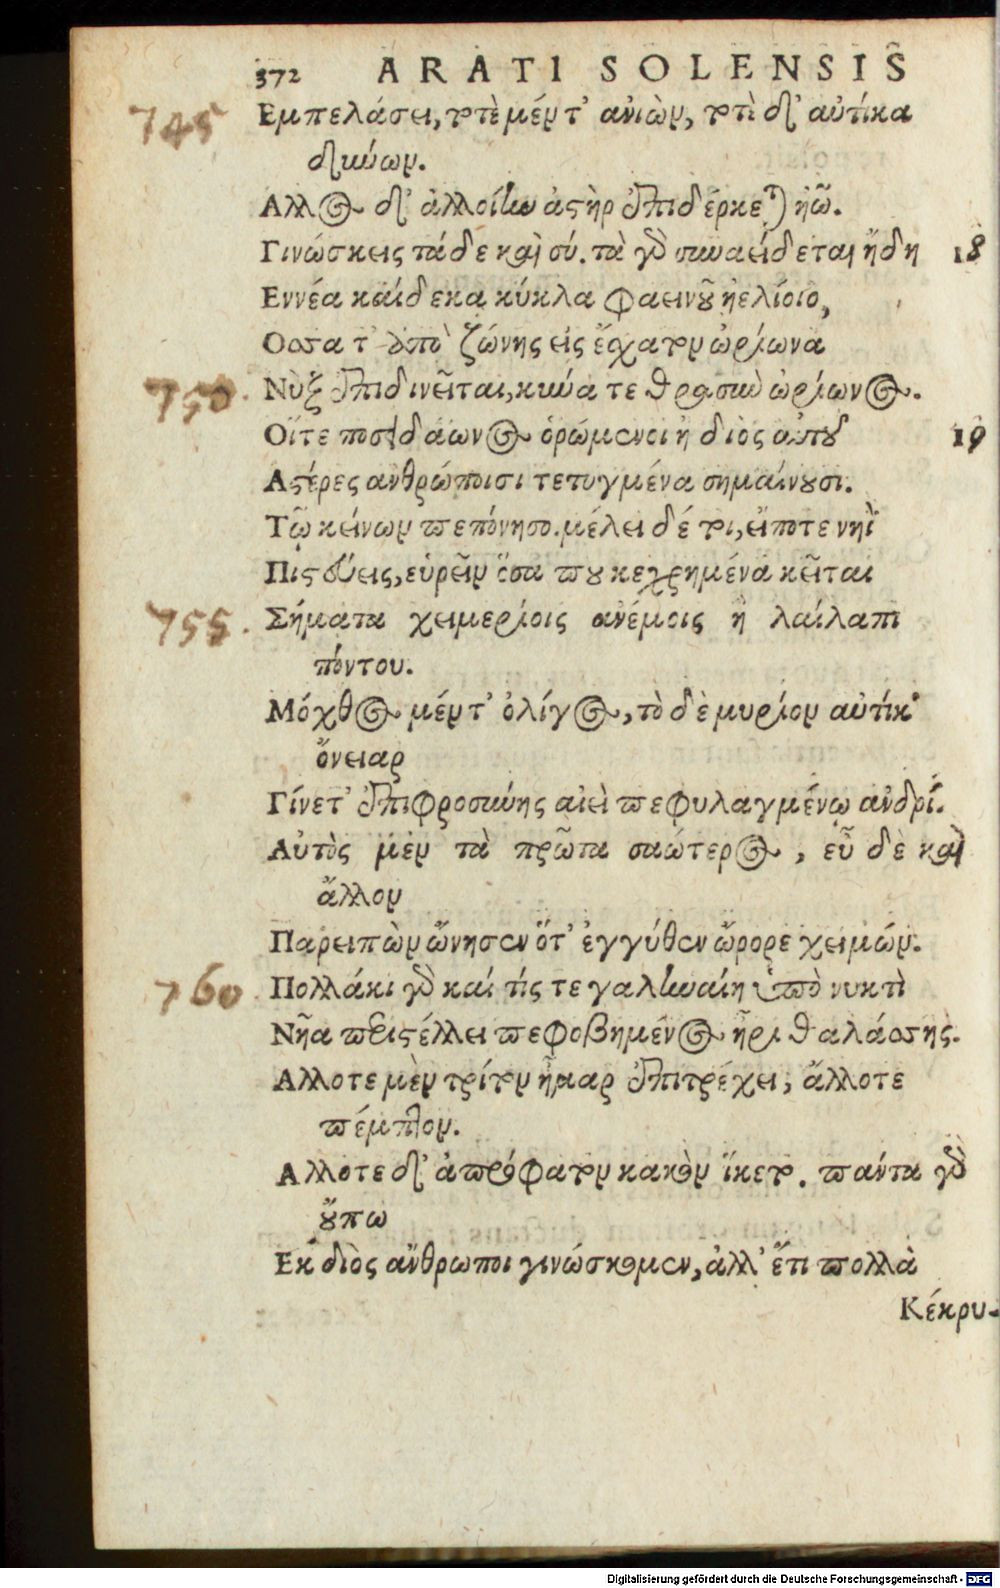 372 ARATI SOLENSIS
745 Εμπελάσει, τοτὲ μέν τ' ἀνιὼν, τοτὲ δ' αὐτίκα
δύνων.
Αλλος δ' ἀλλοίην ἀστὴρ ἐπιδέρκεται ἠῶ.
Γινώσκεις τάδε καὶ σύ. τὰ γὰρ συναείδεται ἤδη 18
Εννέα καίδεκα κύκλα φαεινοῦ ἠελίοιο,
Οσσα τ' ἀπὸ ζώνης εἰς ἔσχατον ὠρίωνα
750. Νὺξ ἐπιδινεῖται, κύνα τε θρασὺν ὠρίωνος.
Οἵτε ποσειδάωνος ὁρώμενοι ἢ διὸς αὐτοῦ 19
Αστέρες ἀνθρώποισι τετυγμένα σημαίνουσι.
Τῷ κείνων πεπόνησο. μέλει δέ τοι, εἴποτε νηῒ
Πιστεύεις, εὑρεῖν ὅσα που κεχρημένα κεῖται
755. Σήματα χειμερίοις ἀνέμοις ἢ λαίλαπι
πόντου.
Μόχθος μέν τ' ὀλίγος, τὸ δὲ μυρίον αὐτίκ'
ὄνειαρ
Γίνετ' ἐπιφροσύνης αἰεὶ πεφυλαγμένῳ ἀνδρί.
Αὐτὸς μὲν τὰ πρῶτα σαώτερος, εὖ δὲ καὶ
ἄλλον
Παρειπὼν ὤνησεν ὅτ' ἐγγύθεν ὤρορε χειμών.
760. Πολλάκι γὰρ καί τίς τε γαληναίῃ ὑπὸ νυκτὶ
Νῆα περιστέλλει πεφοβημένος ἦρι θαλάσσης.
Αλλοτε μὲν τρίτον ἦμαρ ἐπιτρέχει, ἄλλοτε
πέμπτον.
Αλλοτε δ' ἀπρόφατον κακὸν ἵκετο. πάντα γὰρ
οὔπω
Εκ διὸς ἄνθρωποι γινώσκομεν, ἀλλ' ἔτι πολλὰ
Κέκρυ-
Digitalisierung gefördert durch die Deutsche Forschungsgemeinschaft - DFG